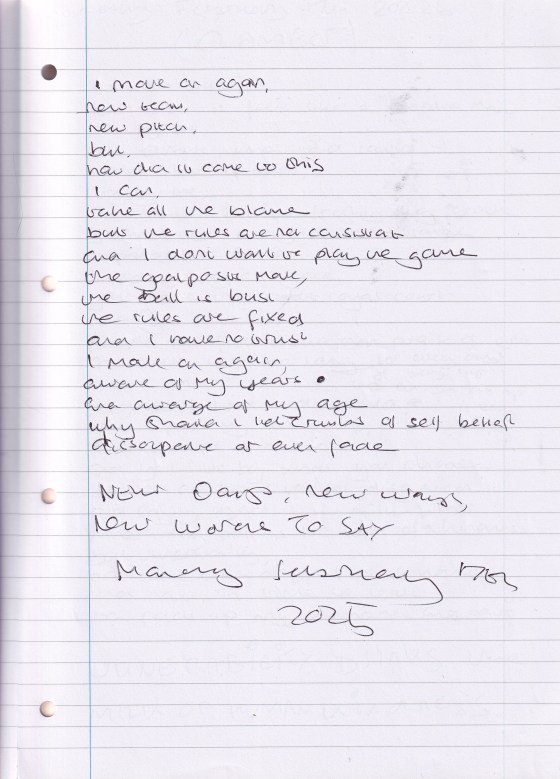 I move on again,
new team,
new pitch,
but,
how did it come to this
I can,
take all the blame
but the rules are not consistent
and I dont want to play the game
the goalposts move,
the ball is bust
the rules are fixed
and I have no trust
I move on again,
aware of my years
and aware of my age
why should I let of self belief
or ever fade
New Days, new ways,
New words TO SAY
Monday February 17th
2025